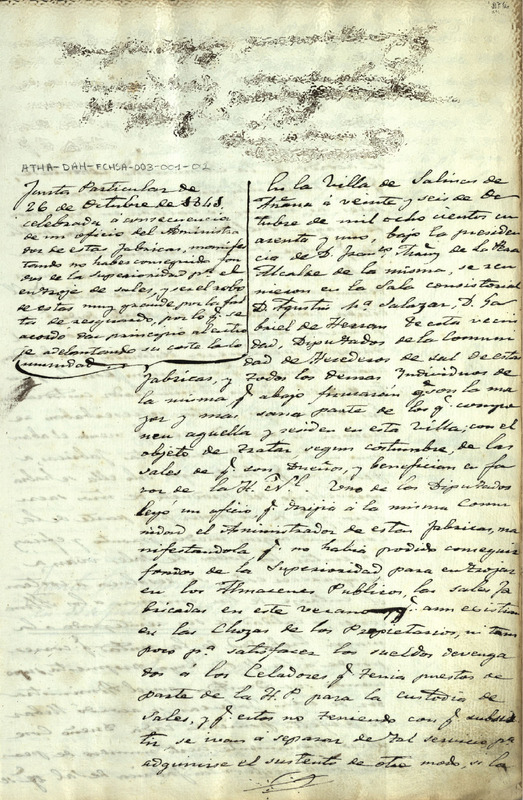 ATHA-DAH-FCHSA-003-001-02
Junta Particular de
26 de Octubre de 1841
celebrada á consecuencia
de un oficio del Administra
dor de estas fabricas, manifes
tando no haber conseguido fon
dos de la Superioridad pª el
entroje de sales, y ser el robo
de estas muy grande por la fal
ta de resguardo, por lo q.e se
acordo dar principio al entro
je adelantando su coste la Co
munidad.
En la Villa de Salinas de
Añana á veinte y seis de Oc
tubre de mil ocho cientos cu
arenta y uno, bajo la presiden
cia de D. de la
Alcalde de la misma, se reu
nieron en la Sala consistorial
D. Agustin Mª Salazar, D. Ga
briel de Herran de esta vecin
dad, Diputados de la Comuni
dad de Herederos de sal de estas
fabricas, y todos los demas Individuos de
la misma q.e abajo firmarán q.e son la ma
yor y mas sana parte de los q.e compo
nen aquella y residen en esta Villa, con el
objeto de tratar, segun costumbre, de las
sales de q.e son Dueños, y benefician en fa
vor de la H. N.l Uno de los Diputados
leyo un oficio q.e dirijió á la misma Comu
nidad el Administrador de estas fabricas, ma
nifestandola q.e no habia podido conseguir
fondos de la Superioridad para entrojar
en los Almacenes Publicos, las sales fa
bricadas en este verano q.e aun existian
en las Chozas de los Propietarios, ni tam
poco pª satisfacer los sueldos devenga
dos á los Celadores q.e tenia puestos de
parte de la H. P. para la custodia de
Sales, y q.e estos no teniendo con q.e subsis
tir se ivan á separar de tal servicio, pª
adquirirse el sustento de otro modo, si la